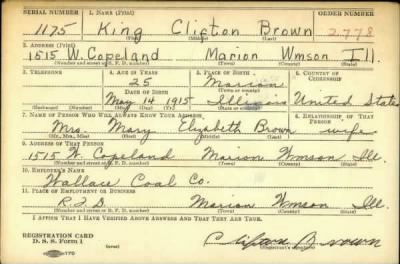 SERIAL NUMBER 1. NAME (Print) ORDER NUMBER
1175 King Clifton Brown 2778
(First) (Middle) (Last)
2. ADDRESS (Print)
1515 W. Copeland Marion Wmson Ill.
(Number and street or R. F. D. number) (Town) (County) (State)
3. TELEPHONE 4. AGE IN YEARS 5. PLACE OF BIRTH 6. COUNTRY OF CITIZENSHIP
25 Marion
DATE OF BIRTH (Town or county)
May 14 1915 Illinois United States
(Exchange) (Number) (Mo.) (Day) (Yr.) (State or country)
7. NAME OF PERSON WHO WILL ALWAYS KNOW YOUR ADDRESS 8. RELATIONSHIP OF THAT PERSON
Mrs. Mary Elizabeth Brown wife
(Mr., Mrs., Miss) (First) (Middle) (Last)
9. ADDRESS OF THAT PERSON
1515 W. Copeland Marion Wmson Ill.
(Number and street or R. F. D. number) (Town) (County) (State)
10. EMPLOYER'S NAME
Wallace Coal Co.
11. PLACE OF EMPLOYMENT OR BUSINESS
R.F.D. Marion Wmson Ill.
(Number and street or R. F. D. number) (Town) (County) (State)
I AFFIRM THAT I HAVE VERIFIED ABOVE ANSWERS AND THAT THEY ARE TRUE.
REGISTRATION CARD
D. S. S. Form 1 Clifton Brown
(Registrant's signature)